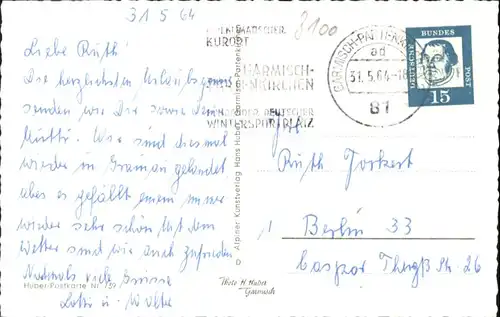 31 5 64
8100
Liebe Ruth!
Die herzlichsten Urlaubsgrüsse
senden wir Dir sowie Deiner
Mutti. Wir sind diesmal
wieder in Grainau gelandet
aber es gefällt einem immer
wieder sehr schön. Mit dem
Wetter sind wir auch zufrieden
Nochmals viele Grüsse
Lotti u. Walter
Huber-Postkarte Nr. 759
HEILKLIMATISCHER
KURORT
GARMISCH-
PARTENKIRCHEN
FÜHRENDER DEUTSCHER
WINTERSPORTPLATZ
© Alpiner Kunstverlag Hans Huber, Garmisch-Partenkirchen
Photo H. Huber
Garmisch
GARMISCH-PARTENKIRCHEN
ad
31.5.64-18
81
DEUTSCHE BUNDESPOST
15
Ruth
Berlin 33
Caspar Theyß Str 26